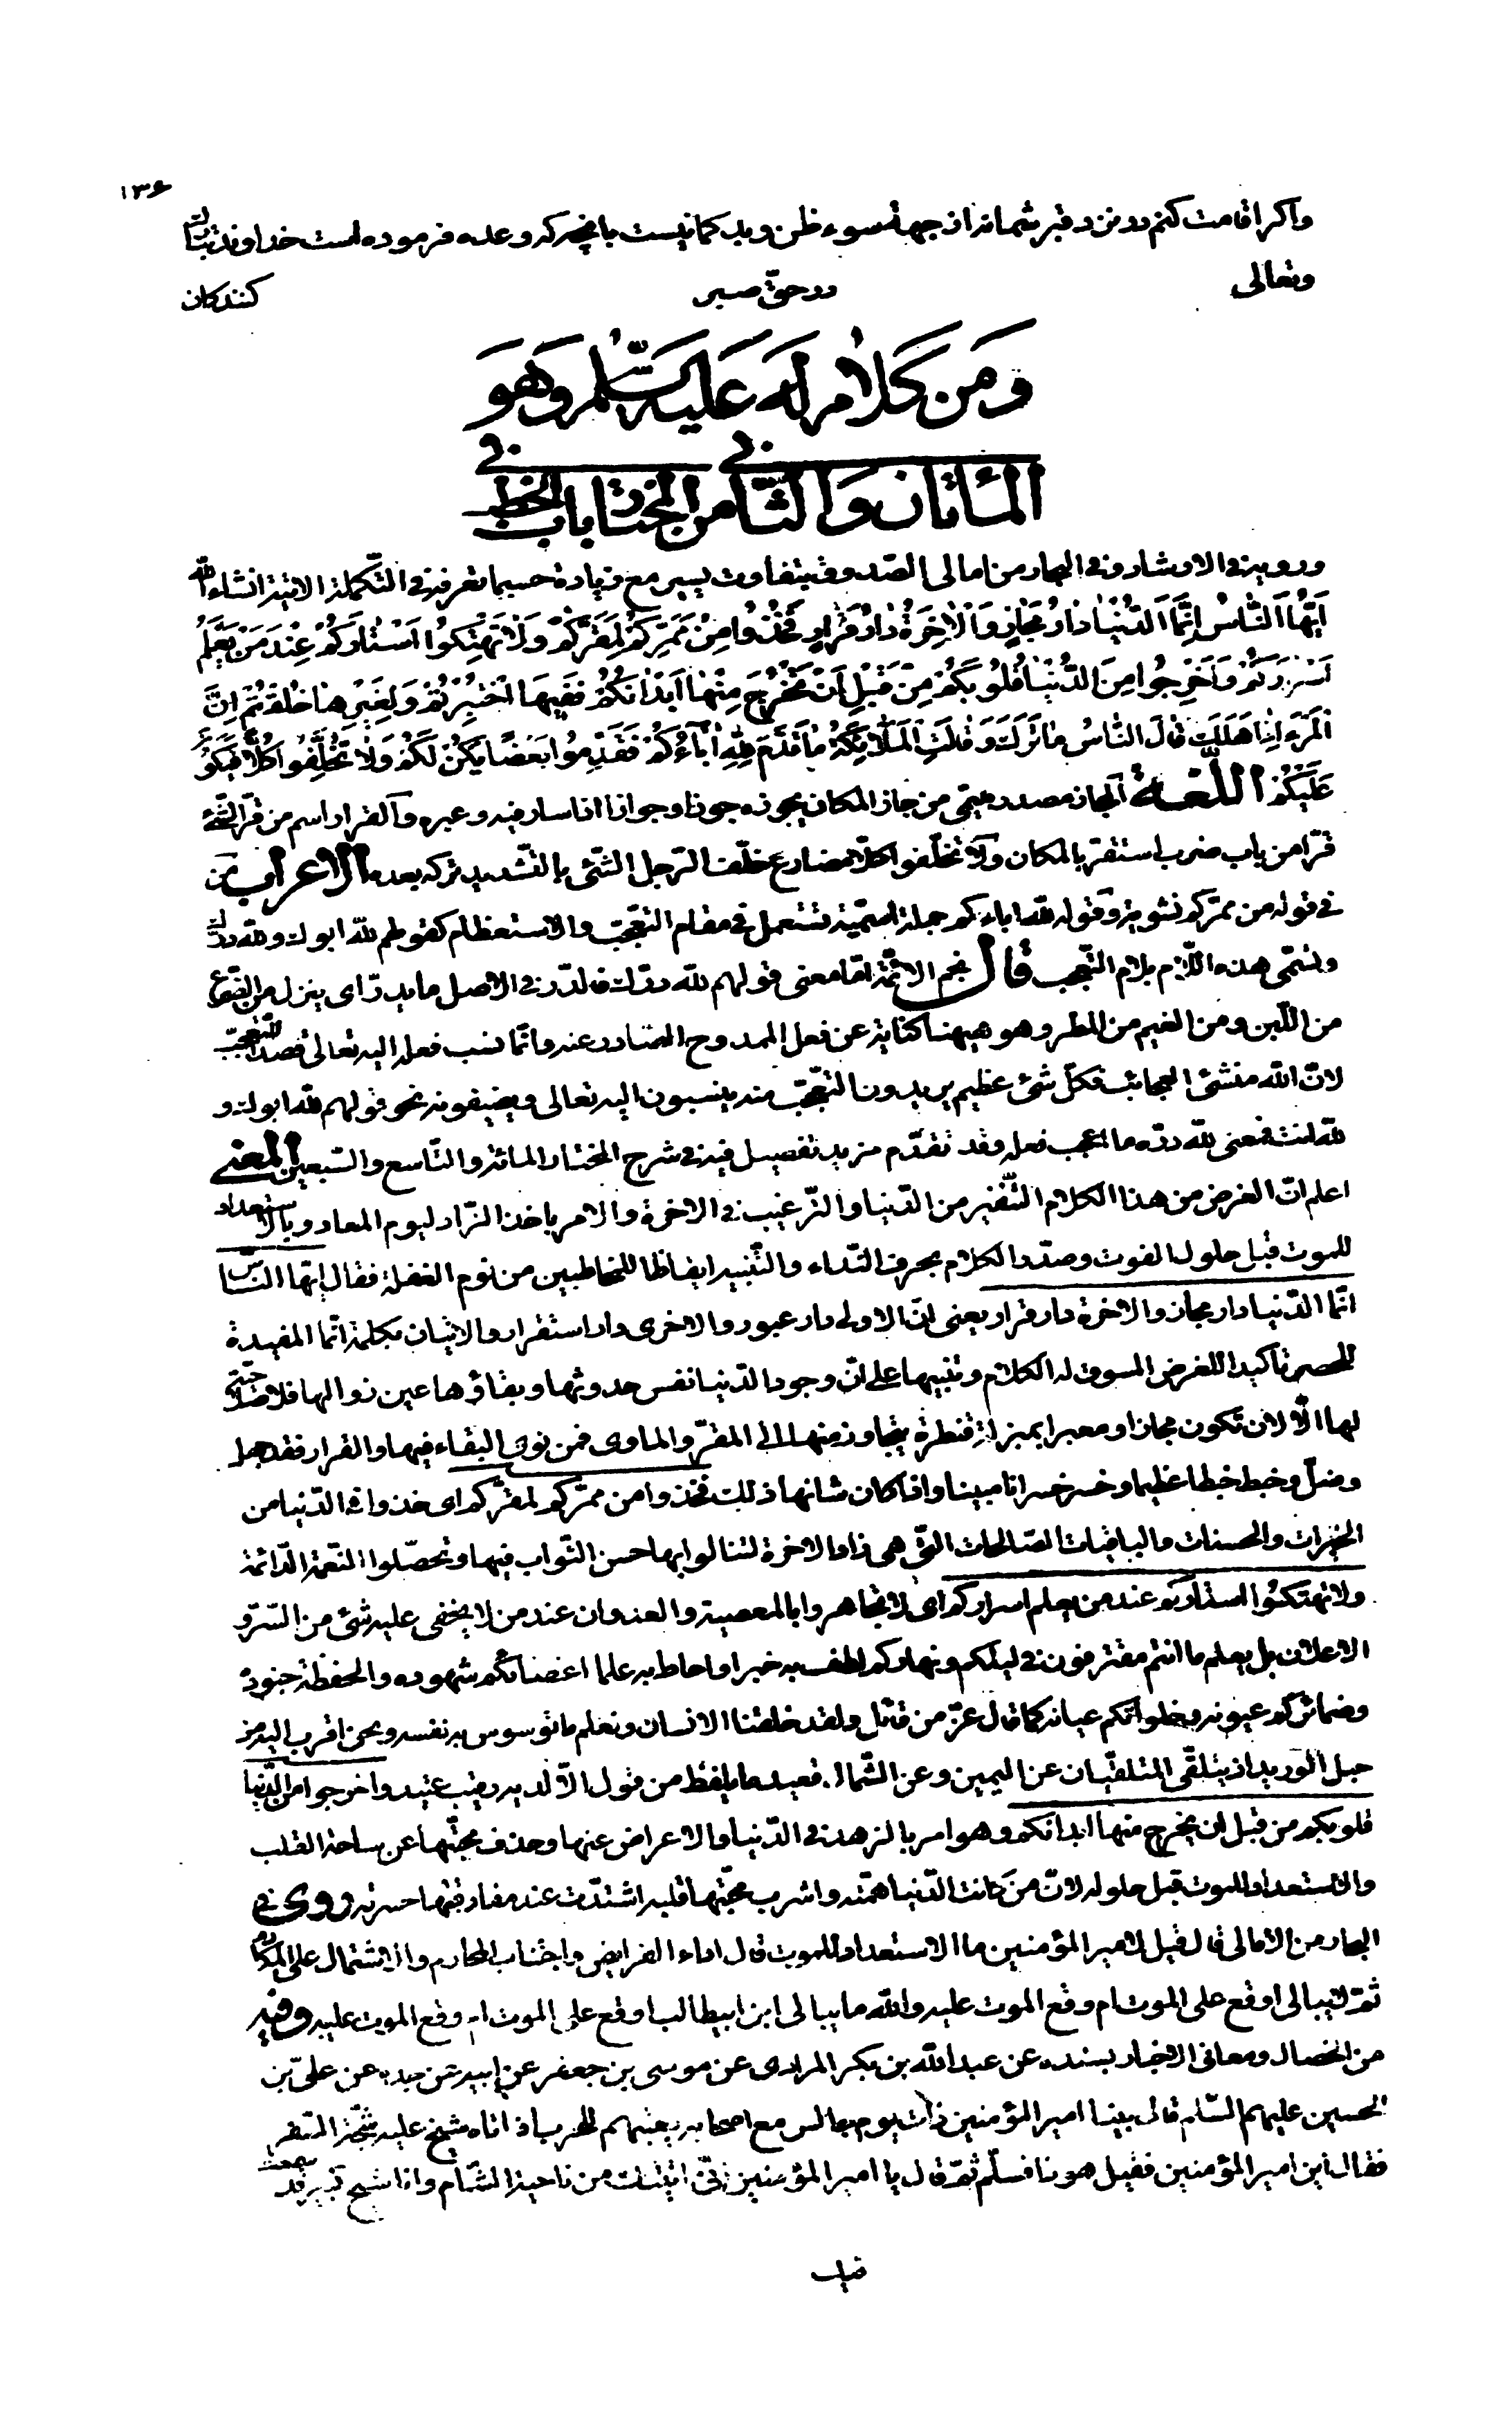 ۱۳۶
واكر اقامت كنم در نزد قبر شما نه از جهة سوء ظن و بد كمانيست بانچه كه وعده فرموده است خداوند تبارك
وتعالى در حق صبر كنندكان
ومن كلام له عليه السلم وهو
المأتان والثامن في المختار في باب الخطب
ورويه في الارشاد وفي البحار من امالى الصدوق بتفاوت يسير مع زيادة حسبما تعرفه في التكملة الاتية انشاء الله
اَيُّهَا النَّاسُ اِنَّمَا الدُّنْيَا دَارُ مَجَازٍ وَالْاٰخِرَةُ دَارُ قَرَارٍ فَخُذُوا مِنْ مَمَرِّكُمْ لِمَقَرِّكُمْ وَلَا تَهْتِكُوا اَسْتَارَكُمْ عِنْدَ مَنْ يَعْلَمُ
اَسْرَارَكُمْ وَاَخْرِجُوا مِنَ الدُّنْيَا قُلُوبَكُمْ مِنْ قَبْلِ اَنْ تَخْرُجَ مِنْهَا اَبْدَانُكُمْ فَفِيهَا اخْتُبِرْتُمْ وَلِغَيْرِهَا خُلِقْتُمْ اِنَّ
الْمَرْءَ اِذَا هَلَكَ قَالَ النَّاسُ مَا تَرَكَ وَقَالَتِ الْمَلَائِكَةُ مَا قَدَّمَ لِلّٰهِ اٰبَاؤُكُمْ فَقَدِّمُوا بَعْضًا يَكُنْ لَكُمْ وَلَا تُخَلِّفُوا كُلًّا فَيَكُونَ
عَلَيْكُمْ اللغة المجاز مصدر ميمى من جاز المكان يجوزه جوزا وجوازا اذا سار فيه وعبره والقرار اسم من قر الشىء
قرا من باب ضرب استقر بالمكان ولا تخلفوا كلا مضارع خلف الرجل الشئ بالتشديد تركه بعده الاعراب من
في قوله من ممركم نشوية وقوله لله اباءكم جملة اسمية تستعمل في مقام التعجب والاستعظام كقولهم لله ابوك ولله درك
وتسمى هذه اللام بلام التعجب قال نجم الائمة اما معنى قولهم لله درك فالدر في الاصل ما يدر اى ينزل من الضرع
من اللبن ومن الغيم من المطر وهو هيهنا كناية عن فعل الممدوح الصادر عنه وانما نسب فعله اليه تعالى قصدا للتعجب
لان الله منشئ العجائب فكل شئ عظيم يريدون التعجب منه ينسبون اليه تعالى ويضيفونه نحو قولهم لله ابوك و
لله انت فمعنى لله دره ما اعجب فعله وقد تقدم مزيد تفصيل فيه في شرح المختار المائة والتاسع والسبعين المعنى
اعلم ان الغرض من هذا الكلام التنفير من الدنيا والترغيب في الاخرة والامر باخذ الزاد ليوم المعاد وبالاستعداد
للموت قبل حلول الفوت وصدر الكلام بحرف النداء والتنبيه ايقاظا للمخاطبين من نوم الغفلة فقال ايها الناس
انما الدنيا دار مجاز والاخرة دار قرار يعنى ان الاولى دار عبور والاخرى دار استقرار والاتيان بكلمة انما المفيدة
للحصر تاكيدا للغرض المسوق له الكلام وتنبيها على ان وجود الدنيا نفس حدوثها وبقاؤها عين زوالها فلا صلاحية
لها الا لان تكون مجازا ومعبرا بمنزلة قنطرة يتجاوز منها الى المقر والماوى فمن نوى البقاء فيها والقرار فقد جهل
وضل وخبط خبطا عظيما وخسر خسرانا مبينا واذا كان شانها ذلك فخذوا من ممركم لمقركم اى خذوا في الدنيا من
الخيرات والحسنات والباقيات الصالحات التى هى زاد الاخرة لتنالوا بها حسن الثواب فيها وتحصلوا النعمة الدائمة
ولا تهتكوا استاركم عند من يعلم اسراركم اى لا تجاهروا بالمعصية والعدوان عند من لا يخفى عليه شئ من السر و
الاعلان بل يعلم ما انتم مقترفون في ليلكم ونهاركم لطف به خبرا واحاط به علما اعضائكم شهوده والحفظة جنوده
وضمائركم عيونه وخلواتكم عيانه كما قال عز من قائل ولقد خلقنا الانسان ونعلم ما توسوس به نفسه ونحن اقرب اليه من
حبل الوريد اذ يتلقى المتلقيان عن اليمين وعن الشمال قعيد ما يلفظ من قول الا لديه رقيب عتيد واخرجوا من الدنيا
قلوبكم من قبل ان يخرج منها ابدانكم وهو امر بالزهد في الدنيا والاعراض عنها وحذف محبتها عن ساحة القلب
والاستعداد للموت قبل حلوله لان من كانت الدنيا همته واشرب محبتها قلبه اشتدت عند مفارقتها حسرته روى في
البحار من الامالى قال قيل لامير المؤمنين ما الاستعداد للموت قال اداء الفرايض واجتناب المحارم والاشتمال على المكارم
ثم لا يبالى اوقع على الموت ام وقع الموت عليه والله ما يبالى ابن ابيطالب اوقع على الموت ام وقع الموت عليه وفيه
من الخصال ومعانى الاخبار بسنده عن عبد الله بن بكر المرادى عن موسى بن جعفر عن ابيه عن جده عن على بن
الحسين عليهم السلم قال بينا امير المؤمنين ذات يوم جالس مع اصحابه يعبيهم للحرب اذ اتاه شيخ عليه شحبة السفر
فقال اين امير المؤمنين فقيل هو ذا فسلم ثم قال يا امير المؤمنين انى اتيتك من ناحية الشام وانا شيخ كبير قد سمعت
فيك